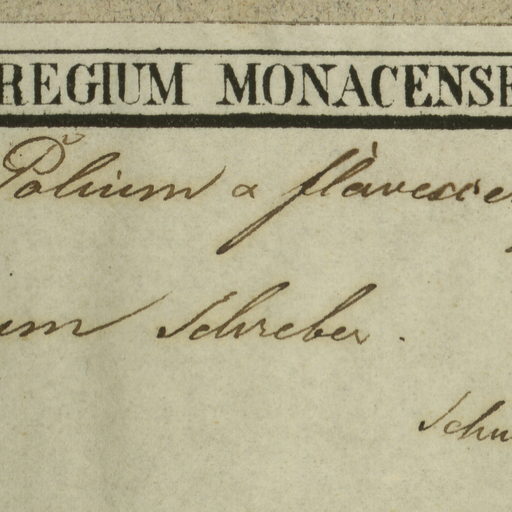 REGIUM MONACENSE
Polium α flavescen
um Schreber.
Schu